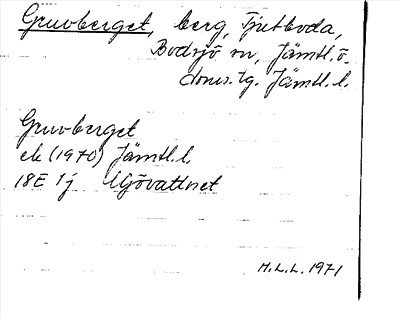 Gruvberget, berg, Tjutboda,
Bodsjö sn, Jämtl. ö
doms. tg. Jämtl. l.
Gruvberget
ek (1970) Jämtl. l.
18E 1j Mjövattnet
H.L.L. 1971